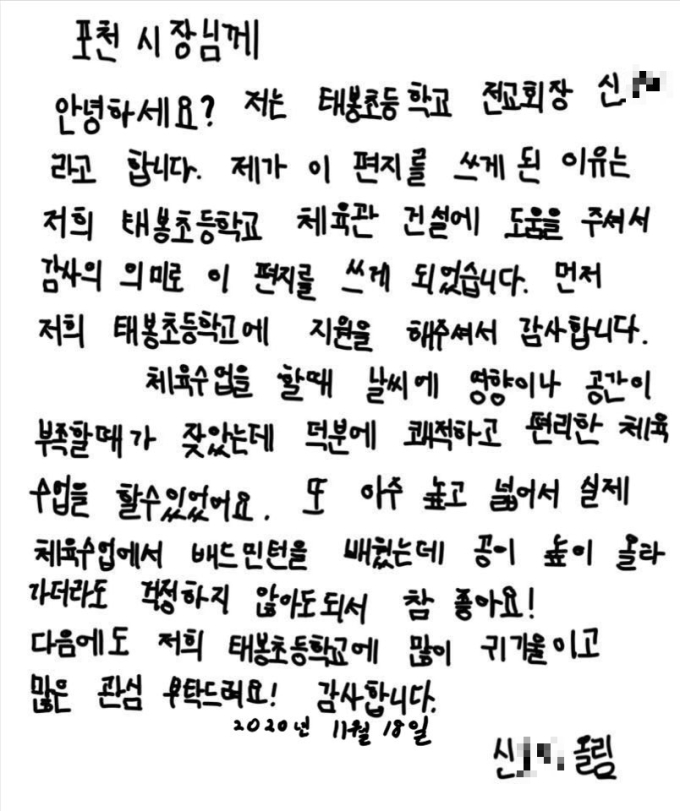 포천 시장님께
안녕하세요? 저는 태봉초등학교 전교회장 신
라고 합니다. 제가 이 편지를 쓰게 된 이유는
저희 태봉초등학교 체육관 건설에 도움을 주셔서
감사의 의미로 이 편지를 쓰게 되었습니다. 먼저
저희 태봉초등학교에 지원을 해주셔서 감사합니다.
체육수업을 할때 날씨에 영향이나 공간이
부족할때가 잦았는데 덕분에 쾌적하고 편리한 체육
수업을 할수있었어요. 또 아주 높고 넓어서 실제
체육수업에서 배드민턴을 배웠는데 공이 높이 올라
가더라도 걱정하지 않아도되서 참 좋아요!
다음에도 저희 태봉초등학교에 많이 귀기울이고
많은 관심 부탁드려요! 감사합니다.
2020년 11월 18일
신 올림